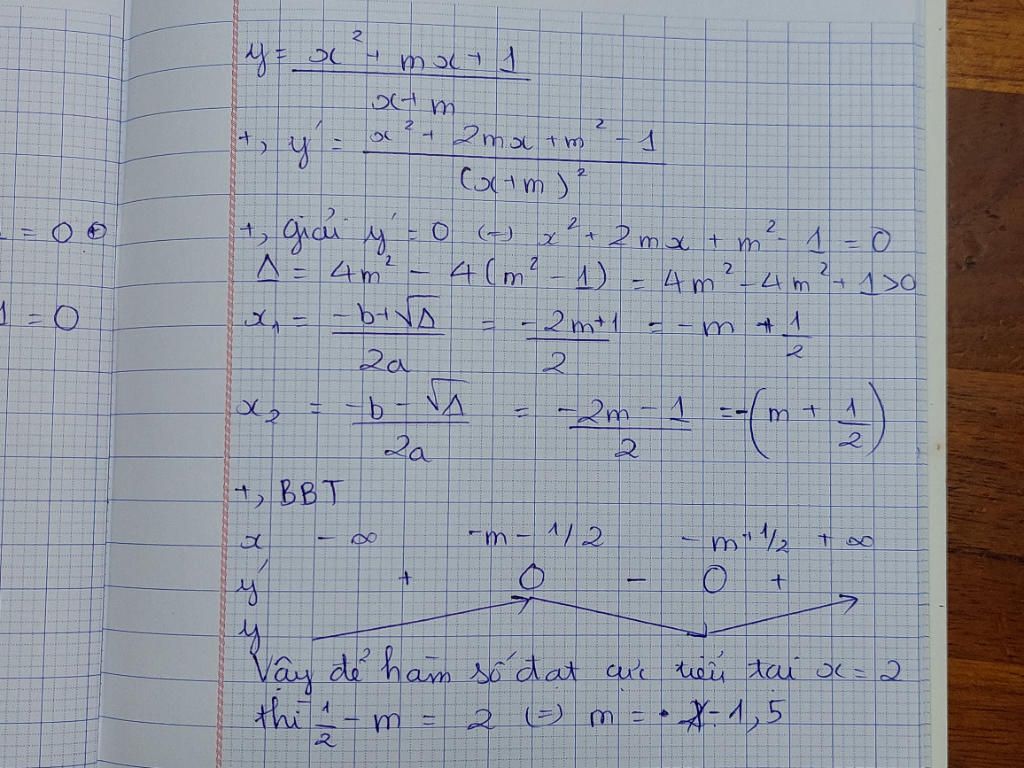 y = (x² + mx + 1)/(x + m)
+, y' = (x² + 2mx + m² - 1)/(x+m)²
= 0
+, Giải y' = 0 (=) x² + 2mx + m² - 1 = 0
Δ = 4m² - 4(m² - 1) = 4m² - 4m² + 1 > 0
1 = 0
x₁ = (-b+√Δ)/2a = (-2m+1)/2 = -m + 1/2
x₂ = (-b - √Δ)/2a = (-2m - 1)/2 = -(m + 1/2)
+, BBT
x -∞ -m - 1/2 -m+1/2 +∞
y' + 0 - 0 +
y
Vậy để hàm số đạt cực tiểu tại x = 2
thì 1/2 - m = 2 (=) m = -1,5